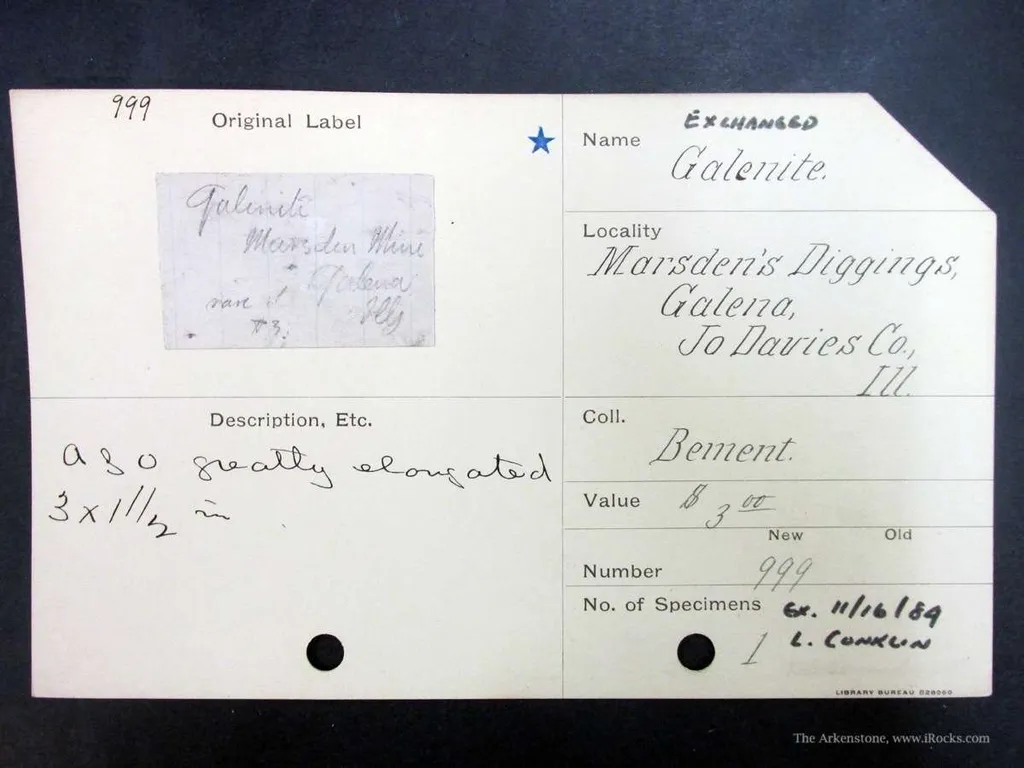 999
Original Label
Galenite
Marsden Mine
Galena
Ills
rare
#3.
Description, Etc.
a 3 0 greatly elongated
3 x 1 1/2 in
EXCHANGED
Name
Galenite.
Locality
Marsden's Diggings,
Galena,
Jo Davies Co.,
Ill.
Coll.
Bement.
Value $ 3 00
New Old
Number 999
No. of Specimens 1
Ex. 11/16/89
L. CONKLIN
LIBRARY BUREAU
The Arkenstone, www.iRocks.com